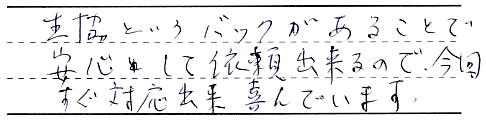 生協というバックがあることで
安心して依頼出来るので、今回
すぐ対応出来喜んでいます。